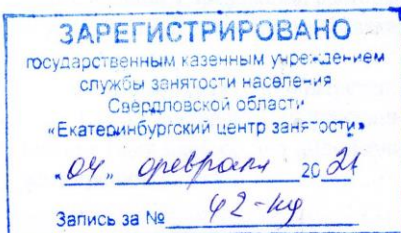 ЗАРЕГИСТРИРОВАНО
государственным казенным учреждением
службы занятости населения
Свердловской области
«Екатеринбургский центр занятости»
«04» февраля 2021
Запись за № 42-кд